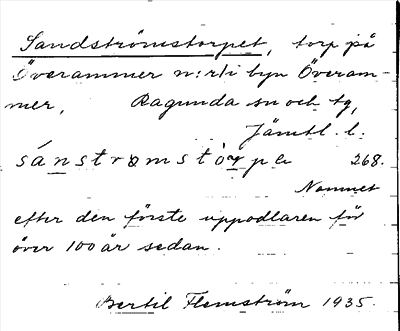 Sandströmstorpet, torp på
Överammer n:r 1 i byn Överam-
mer, Ragunda sn och tg,
Jämtl. l.
sánstromstòrpe 268.
Namnet
efter den förste uppodlaren för
över 100 år sedan.
Bertil Flemström 1935.